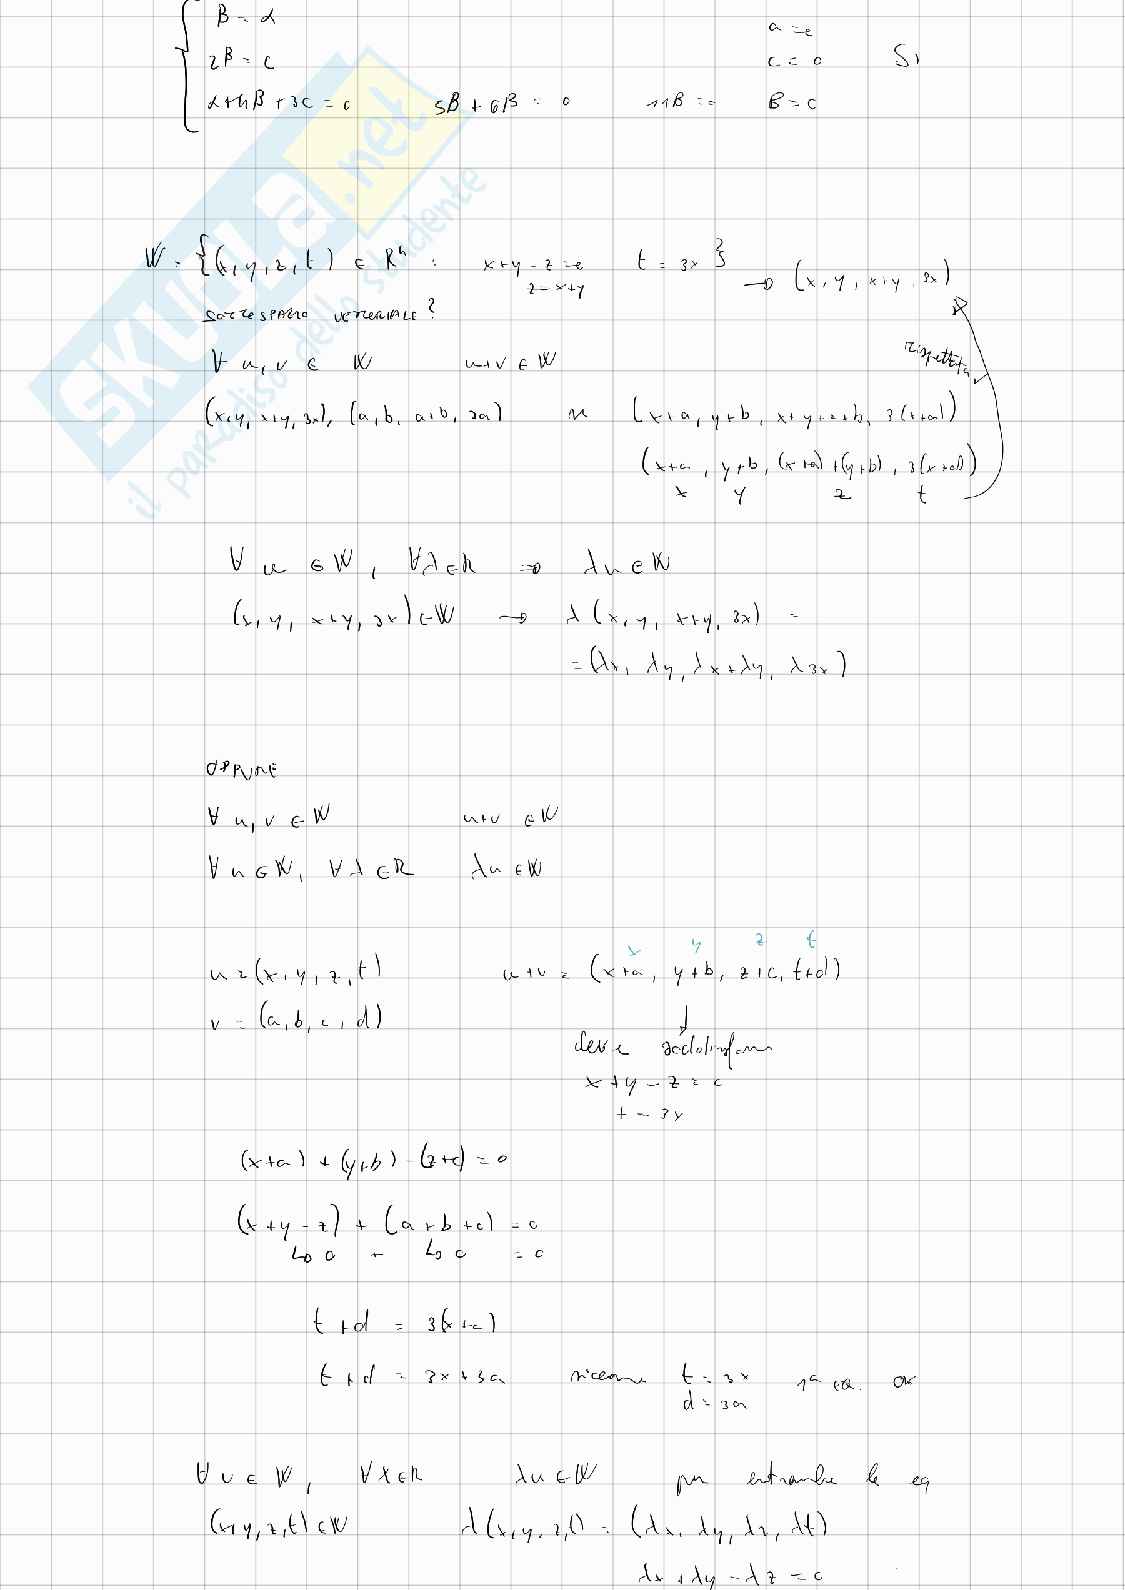 β = α
2β = c
α + 4β + 3c = 0 5β + 6β = 0 11β = 0 β = 0
a = 0
c = 0 Sì
SKUOLA.net
il paradiso dello studente
W = {(x, y, z, t) ∈ R⁴ : x+y-z=0 t = 3x} → (x, y, x+y, 3x)
z = x+y
SOTTOSPAZIO VETTORIALE?
∀ u, v ∈ W u+v ∈ W
rispetta
(x,y, x+y, 3x), (a, b, a+b, 3a) (x+a, y+b, x+y+a+b, 3(x+a))
(x+a, y+b, (x+a)+(y+b), 3(x+a))
x y z t
∀ u ∈ W, ∀λ∈R ⇒ λu ∈ W
(x, y, x+y, 3x) ∈ W → λ(x, y, x+y, 3x) =
= (λx, λy, λx+λy, λ3x)
OPPURE
∀ u, v ∈ W u+v ∈ W
∀ u ∈ W, ∀ λ ∈ R λu ∈ W
x y z t
u = (x, y, z, t) u+v = (x+a, y+b, z+c, t+d)
v = (a, b, c, d)
↓
deve soddisfare
x+y-z = 0
t = 3x
(x+a) + (y+b) - (z+c) = 0
(x+y-z) + (a+b+c) = 0
↳ 0 + ↳ 0 = 0
t+d = 3(x+a)
t+d = 3x+3a siccome t = 3x 1ª eq. ok
d = 3a
∀ u ∈ W, ∀λ∈R λu ∈ W per entrambe le eq
(x,y,z,t) ∈ W λ(x,y,z,t) = (λx, λy, λz, λt)
λx + λy - λz = 0